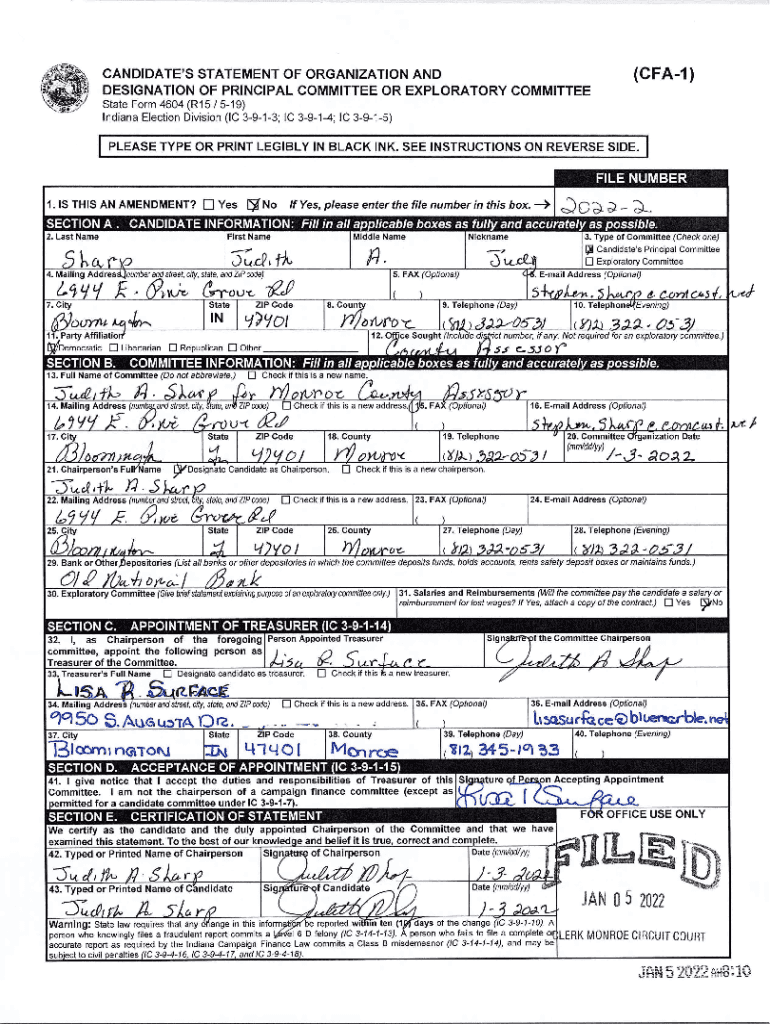 CANDIDATE'S STATEMENT OF ORGANIZATION AND (CFA-1)
DESIGNATION OF PRINCIPAL COMMITTEE OR EXPLORATORY COMMITTEE
State Form 4604 (R15 / 5-19)
Indiana Election Division (IC 3-9-1-3; IC 3-9-1-4; IC 3-9-1-5)
PLEASE TYPE OR PRINT LEGIBLY IN BLACK INK. SEE INSTRUCTIONS ON REVERSE SIDE.
FILE NUMBER
1. IS THIS AN AMENDMENT? Yes No If Yes, please enter the file number in this box. → 2022-2
SECTION A. CANDIDATE INFORMATION: Fill in all applicable boxes as fully and accurately as possible.
2. Last Name First Name Middle Name Nickname 3. Type of Committee (Check one)
Sharp Judith A. Judy Candidate's Principal Committee
Exploratory Committee
4. Mailing Address (number and street, city, state, and ZIP code) 5. FAX (Optional) 6. E-mail Address (Optional)
6944 E. Pine Grove Rd ( ) stephen.sharp@comcast.net
7. City State ZIP Code 8. County 9. Telephone (Day) 10. Telephone (Evening)
Bloomington IN 47401 Monroe (812) 322-0531 (812) 322-0531
11. Party Affiliation 12. Office Sought (Include district number, if any. Not required for an exploratory committee.)
Democratic Libertarian Republican Other County Assessor
SECTION B. COMMITTEE INFORMATION: Fill in all applicable boxes as fully and accurately as possible.
13. Full Name of Committee (Do not abbreviate.) Check if this is a new name.
Judith A. Sharp for Monroe County Assessor
14. Mailing Address (number and street, city, state, and ZIP code) Check if this is a new address. 15. FAX (Optional) 16. E-mail Address (Optional)
6944 E. Pine Grove Rd ( ) stephen.sharp@comcast.net
17. City State ZIP Code 18. County 19. Telephone 20. Committee Organization Date
(mm/dd/yy)
Bloomingh In 47401 Monroe (812) 322-0531 1-3-2022
21. Chairperson's Full Name Designate Candidate as Chairperson. Check if this is a new chairperson.
Judith A. Sharp
22. Mailing Address (number and street, city, state, and ZIP code) Check if this is a new address. 23. FAX (Optional) 24. E-mail Address (Optional)
6944 E. Pine Grove Rd ( )
25. City State ZIP Code 26. County 27. Telephone (Day) 28. Telephone (Evening)
Bloomington In 47401 Monroe (812) 322-0531 (812) 322-0531
29. Bank or Other Depositories (List all banks or other depositories in which the committee deposits funds, holds accounts, rents safety deposit boxes or maintains funds.)
Old National Bank
30. Exploratory Committee (Give brief statement explaining purpose of an exploratory committee only.) 31. Salaries and Reimbursements (Will the committee pay the candidate a salary or
reimbursement for lost wages? If Yes, attach a copy of the contract.) Yes No
SECTION C. APPOINTMENT OF TREASURER (IC 3-9-1-14)
32. I, as Chairperson of the foregoing Person Appointed Treasurer Signature of the Committee Chairperson
committee, appoint the following person as
Treasurer of the Committee. Lisa R. Surface Judith A Sharp
33. Treasurer's Full Name Designate candidate as treasurer. Check if this is a new treasurer.
LISA R SURFACE
34. Mailing Address (number and street, city, state, and ZIP code) Check if this is a new address. 35. FAX (Optional) 36. E-mail Address (Optional)
9950 S. AUGUSTA DR. ( ) lisasurface@bluemarble.net
37. City State ZIP Code 38. County 39. Telephone (Day) 40. Telephone (Evening)
BloomINGTON IN 47401 Monroe (812) 345-1933 ( )
SECTION D. ACCEPTANCE OF APPOINTMENT (IC 3-9-1-15)
41. I give notice that I accept the duties and responsibilities of Treasurer of this Signature of Person Accepting Appointment
Committee. I am not the chairperson of a campaign finance committee (except as
permitted for a candidate committee under IC 3-9-1-7). Lisa R Surface
SECTION E. CERTIFICATION OF STATEMENT FOR OFFICE USE ONLY
We certify as the candidate and the duly appointed Chairperson of the Committee and that we have
examined this statement. To the best of our knowledge and belief it is true, correct and complete.
42. Typed or Printed Name of Chairperson Signature of Chairperson Date (mm/dd/yy)
Judith A. Sharp Judith A Sharp 1-3-2022 FILED
43. Typed or Printed Name of Candidate Signature of Candidate Date (mm/dd/yy)
Judith A. Sharp Judith A Sharp 1-3 2022 JAN 05 2022
Warning: State law requires that any change in this information be reported within ten (10) days of the change (IC 3-9-1-10). A
person who knowingly files a fraudulent report commits a Level 6 D felony (IC 3-14-1-13). A person who fails to file a complete or CLERK MONROE CIRCUIT COURT
accurate report as required by the Indiana Campaign Finance Law commits a Class B misdemeanor (IC 3-14-1-14), and may be
subject to civil penalties (IC 3-9-4-16, IC 3-9-4-17, and IC 3-9-4-18).
JAN 5 2022 AM8:10